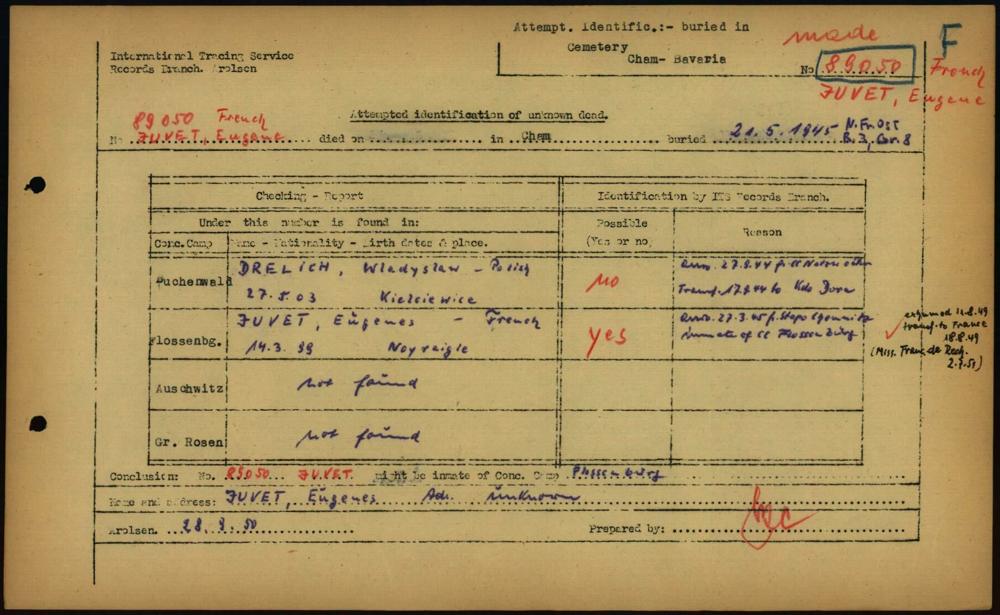 Attempt. Identific.:- buried in
Cemetery
Cham- Bavaria
made
F
International Tracing Service
Records Branch. Arolsen
No 89050
French
JUVET, Eugene
89050 French
Attempted identification of unknown dead.
No JUVET, Eugene died on in Cham buried 21.5.1945 N.Fr.Ost
B.3, Gr.8
Checking - Report
Identification by ITS Records Branch.
Under this number is found in:
Possible
(Yes or no)
Reason
Conc.Camp
Name - Nationality - Birth dates & place.
Buchenwald
DRELICH, Wladyslaw - Polish
27.5.03 Kielciewice
no
Transf. 17.9.44 to Kdo Dora
Flossenbg.
JUVET, Eugenes - French
14.3.99
yes
inmate of CC Flossenbürg
exhumed 11.8.49
transf. to France
18.8.49
(Miss. Franç. de Rech.
Auschwitz
not found
Gr. Rosen
not found
Conclusion: No. 89050 JUVET might be inmate of Conc. Camp Flossenbürg
Name and address: JUVET, Eugenes Adr. unknown
Arolsen. 28.9.50
Prepared by: